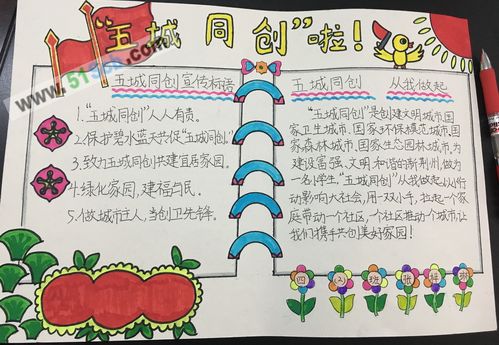 "五城同创"啦！
五城同创宣传标语
1."五城同创"人人有责。
2.保护碧水蓝天共促"五城同创。"
3.致力五城同创共建宜居家园。
4.绿化家园，建福与民。
5.做城市主人，当创卫先锋。
五城同创 从我做起
"五城同创"是创建文明城市、国
家卫生城市、国家环保模范城市、国
家森林城市、国家生态园林城市，为
建设富强、文明、和谐的新荆州，做为
一名小学生，"五城同创"从我做起，从小行
动影响大社会，用一双小手，拉起一个家
庭带动一个社区，一个社区推动一个城市，让
我们携手共创美好家园！
四 班